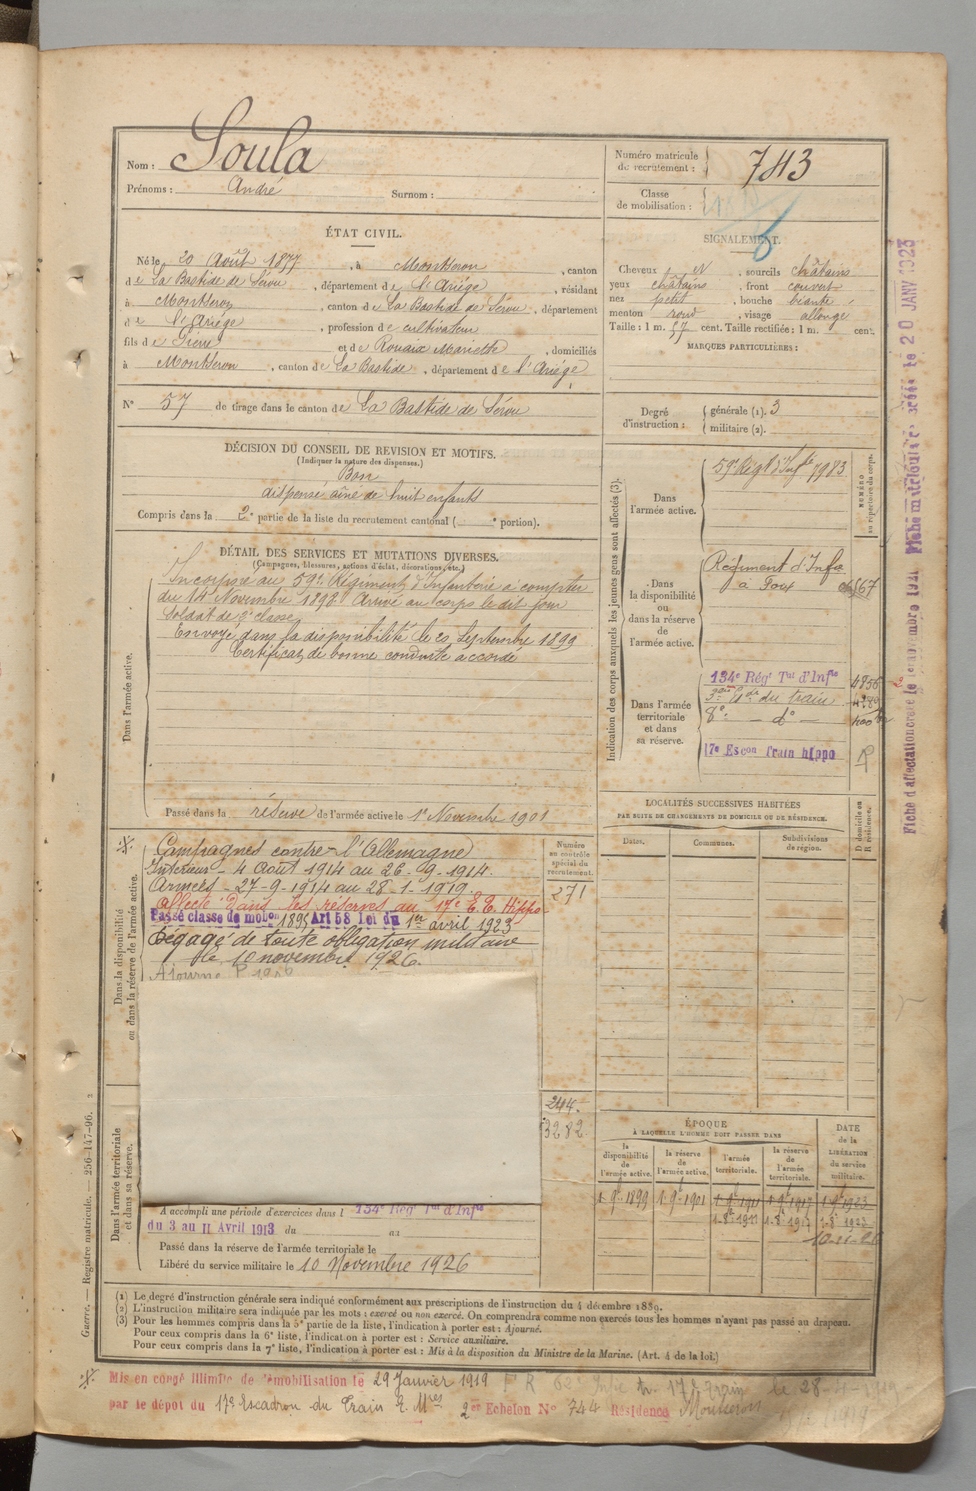 Nom : Soula
Prénoms : André Surnom :
Numéro matricule de recrutement : 743
Classe de mobilisation :
ÉTAT CIVIL.
Né le 20 Août 1877, à Montseron, canton
de La Bastide de Sérou, département de l'Ariége, résidant
à Montseron, canton de La Bastide de Sérou, département
de l'Ariége, profession de cultivateur
fils de Pierre et de Rouaix Mariette, domiciliés
à Montseron, canton de La Bastide, département de l'Ariége
N° 57 de tirage dans le canton de La Bastide de Sérou
SIGNALEMENT.
Cheveux et, sourcils châtains
yeux châtains, front couvert
nez petit, bouche béante
menton rond, visage allongé
Taille : 1 m. 57 cent. Taille rectifiée : 1 m. cent.
MARQUES PARTICULIÈRES :
Degré d'instruction : générale (1). 3
militaire (2).
DÉCISION DU CONSEIL DE REVISION ET MOTIFS.
(Indiquer la nature des dispenses.)
Bon
dispensé aîné de huit enfants
Compris dans la 2e partie de la liste du recrutement cantonal ( e portion).
DÉTAIL DES SERVICES ET MUTATIONS DIVERSES.
(Campagnes, blessures, actions d'éclat, décorations, etc.)
Dans l'armée active.
Incorporé au 59e Régiment d'Infanterie à compter
du 14 Novembre 1898 Arrivé au corps le dit jour
Soldat de 2e classe
Envoyé dans la disponibilité le 20 Septembre 1899
Certificat de bonne conduite accordé
Passé dans la réserve de l'armée active le 1er Novembre 1901
Indication des corps auxquels les jeunes gens sont affectés (3).
NUMÉRO au répertoire du corps.
Dans l'armée active.
59e Régt d'Infie 7983
Dans la disponibilité ou dans la réserve de l'armée active.
Régiment d'Infie
à Foix 567
Dans l'armée territoriale et dans sa réserve.
134e Régt Tal d'Infie 4856
du train
17e Escon Train hippo
LOCALITÉS SUCCESSIVES HABITÉES
PAR SUITE DE CHANGEMENTS DE DOMICILE OU DE RÉSIDENCE.
Dates. Communes. Subdivisions de région. D domicile ou R résidence.
Dans la disponibilité ou dans la réserve de l'armée active.
Numéro au contrôle spécial du recrutement.
271
Campagnes contre l'Allemagne
Intérieur - 4 Août 1914 au 26-9-1914.
Armées - 27-9-1914 au 28-1-1919.
affecté dans les réserves au 17e E.T. Hippo
Passé classe de mobon 1895 Art 58 Loi du 1er avril 1923
Dégagé de toute obligation militaire
le 10 novembre 1926.
244.
3282
Dans l'armée territoriale et dans sa réserve.
A accompli une période d'exercices dans l 134e Rég Tal d'Infie
du 3 au 11 Avril 1913 du au
Passé dans la réserve de l'armée territoriale le
Libéré du service militaire le 10 Novembre 1926
ÉPOQUE
À LAQUELLE L'HOMME DOIT PASSER DANS
la disponibilité de l'armée active. la réserve de l'armée active. l'armée territoriale. la réserve de l'armée territoriale.
DATE de la LIBÉRATION du service militaire.
1-9bre-1899 1-9bre-1901 1-9bre-1911 1-9bre-1917 1-9bre-1923
1-8bre-1911 1-8bre-1917 1-8bre-1923
10-11-26
(1) Le degré d'instruction générale sera indiqué conformément aux prescriptions de l'instruction du 4 décembre 1889.
(2) L'instruction militaire sera indiquée par les mots : exercé ou non exercé. On comprendra comme non exercés tous les hommes n'ayant pas passé au drapeau.
(3) Pour les hommes compris dans la 5e partie de la liste, l'indication à porter est : Ajourné.
Pour ceux compris dans la 6e liste, l'indication à porter est : Service auxiliaire.
Pour ceux compris dans la 7e liste, l'indication à porter est : Mis à la disposition du Ministre de la Marine. (Art. 4 de la loi.)
Mis en congé illimité de démobilisation le 29 Janvier 1919
par le dépôt du 17e Escadron du Train 2e Echelon N° 744 Résidence Montseron
Guerre. — Registre matricule. — 256-147-96.
Fiche d'affectation créée le 1er novembre 1921 Fiche matriculaire créée le 20 JANV 1923